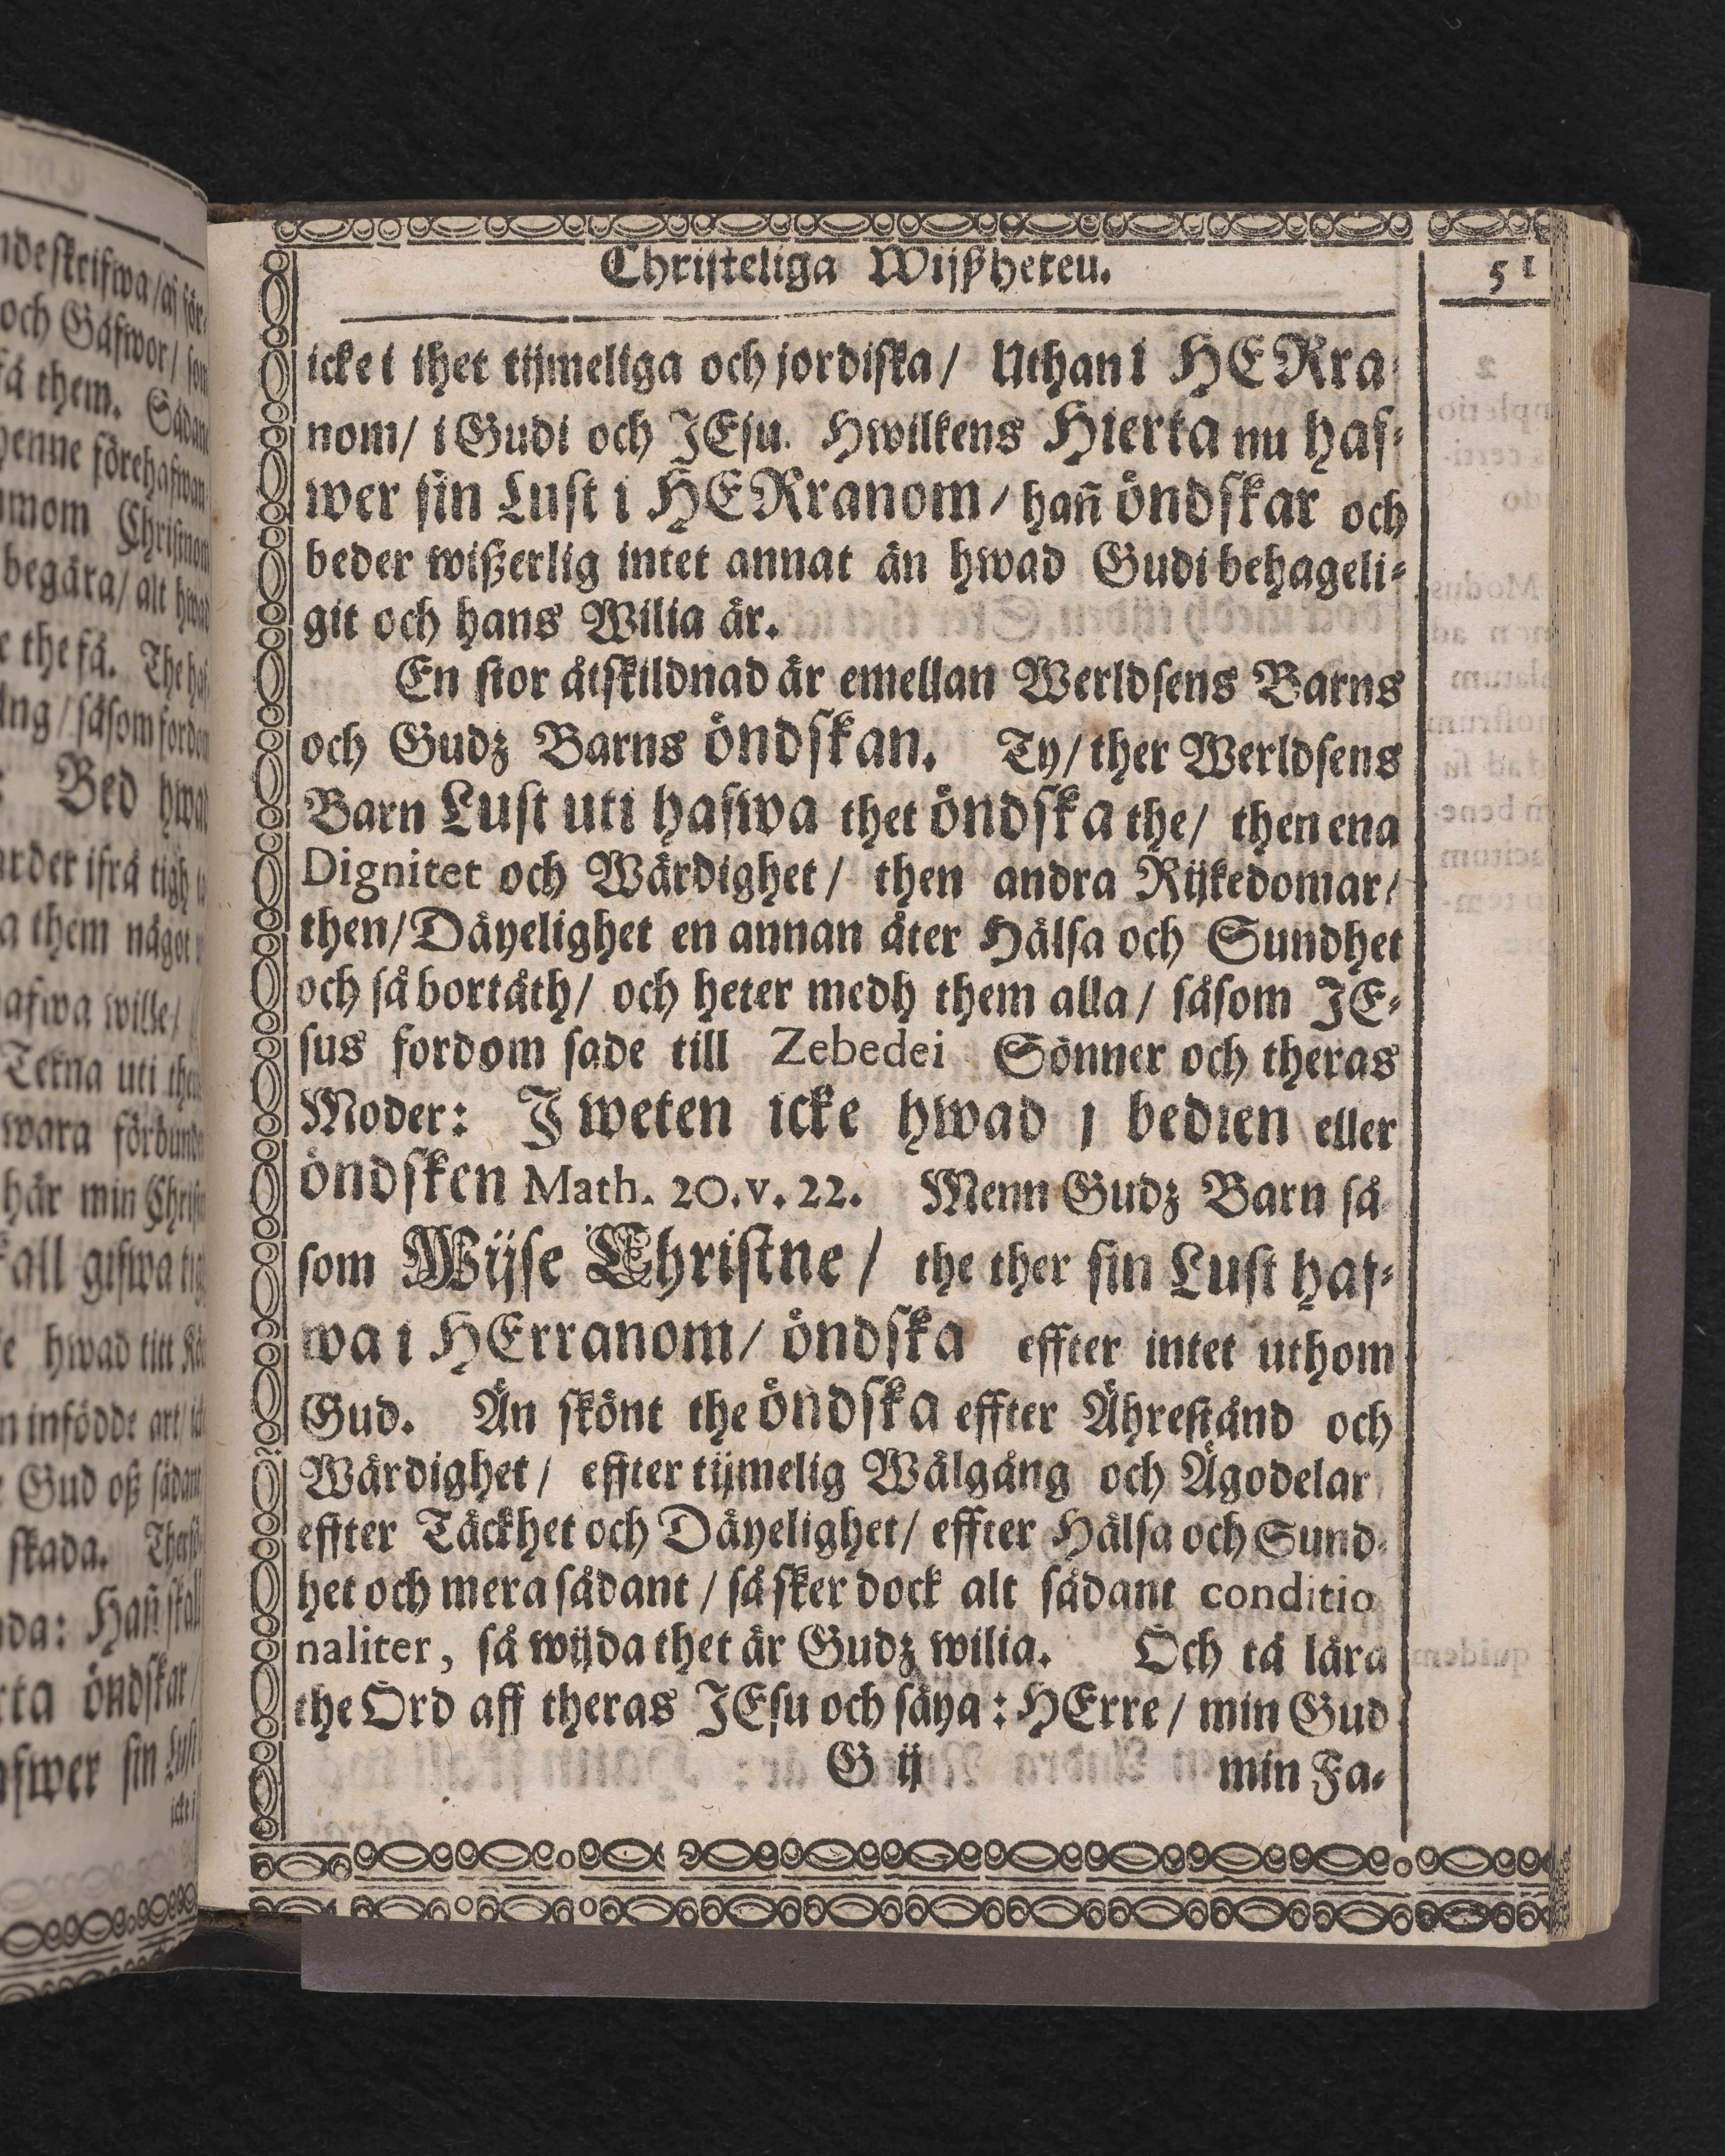 Christeliga Wijßheteu.
51
icke i thet tijmeliga och jordiska / Uthan i HERra
nom / i Gudi och JEsu. Hwilkens Hierta nu haf⸗
wer sin Lust i HERranom / hañ öndskar och
beder wißerlig intet annat än hwad Gudi behageli⸗
git och hans Wilia är.
En stor åtskildnad är emellan Werldsens Barns
och Gudz Barns öndskan. Ty / ther Werldsens
Barn Lust uti hafwa thet öndska the / then ena
Dignitet och Wärdighet / then andra Rijkedomar /
then / Däyelighet en annan åter Hälsa och Sundhet
och så bortåth / och heter medh them alla / såsom JE⸗
sus fordom sade till Zebedei Sönner och theras
Moder: J weten icke hwad j bedien eller
öndsken Math. 20. v. 22. Menn Gudz Barn så
som Wijse Christne / the ther sin Lust haf⸗
wa i HErranom / öndska effter intet uthom
Gud. Än skönt the öndska effter Ährestånd och
Wärdighet / effter tijmelig Wälgång och Ägodelar
effter Täckhet och Däyelighet / effter Hälsa och Sund⸗
het och mera sådant / så sker dock alt sådant conditio
naliter, så wijda thet är Gudz wilia. Och tå lära
the Ord aff theras JEsu och säya: HErre / min Gud
G ij
min Fa⸗